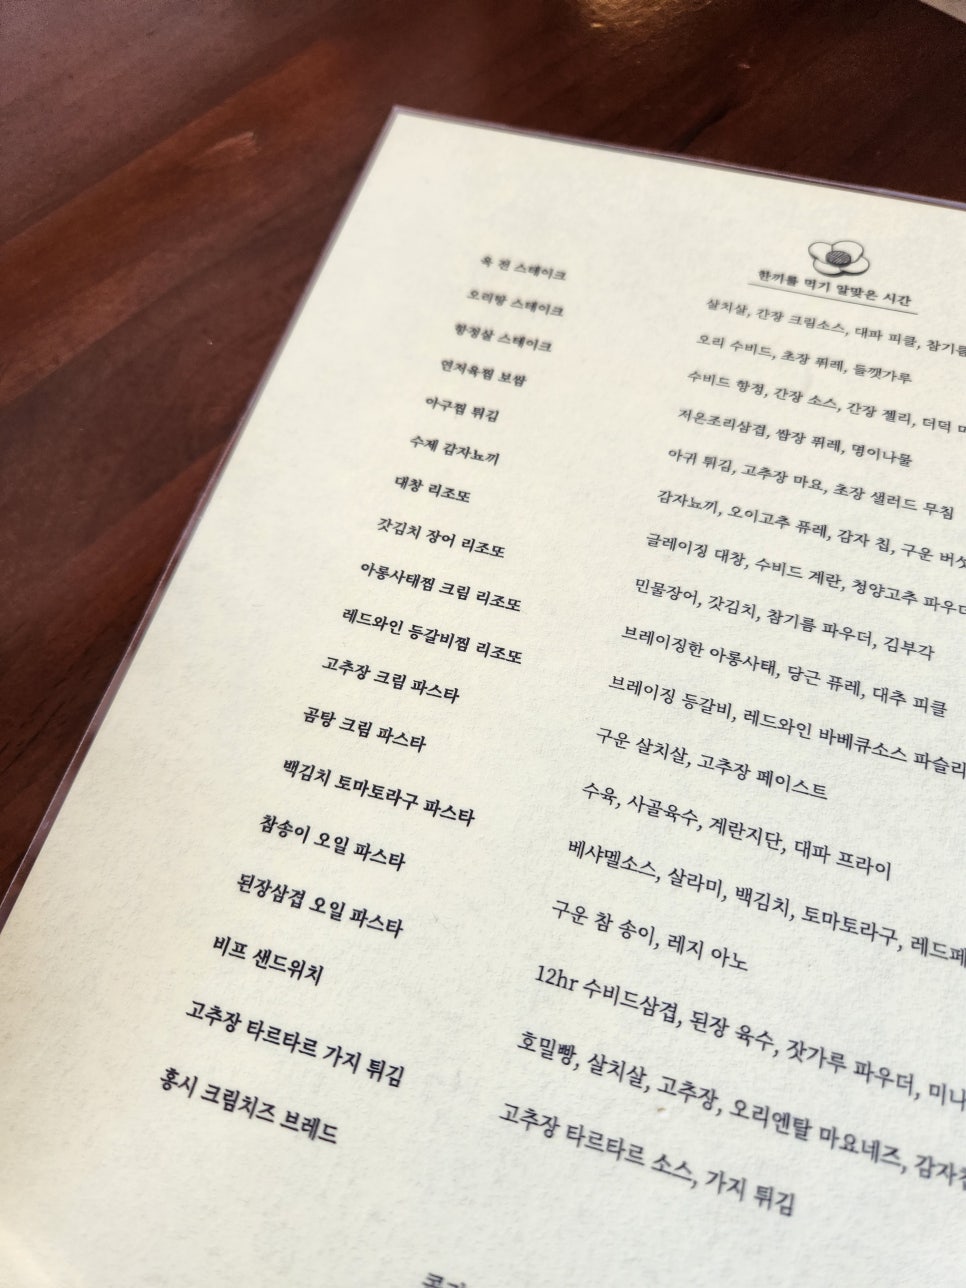 한끼를 먹기 알맞은 시간
육 전 스테이크
살치살, 간장 크림소스, 대파 피클, 참기름
오리탕 스테이크
오리 수비드, 초장 퓌레, 들깻가루
항정살 스테이크
수비드 항정, 간장 소스, 간장 젤리, 더덕
연저육찜 보쌈
저온조리삼겹, 쌈장 퓌레, 명이나물
아구찜 튀김
아귀 튀김, 고추장 마요, 초장 샐러드 무침
수제 감자뇨끼
감자뇨끼, 오이고추 퓨레, 감자 칩, 구운 버섯
대창 리조또
글레이징 대창, 수비드 계란, 청양고추 파우더
갓김치 장어 리조또
민물장어, 갓김치, 참기름 파우더, 김부각
아롱사태찜 크림 리조또
브레이징한 아롱사태, 당근 퓨레, 대추 피클
레드와인 등갈비찜 리조또
브레이징 등갈비, 레드와인 바베큐소스 파슬리
고추장 크림 파스타
구운 살치살, 고추장 페이스트
곰탕 크림 파스타
수육, 사골육수, 계란지단, 대파 프라이
백김치 토마토라구 파스타
베샤멜소스, 살라미, 백김치, 토마토라구, 레드페
참송이 오일 파스타
구운 참 송이, 레지 아노
된장삼겹 오일 파스타
12hr 수비드삼겹, 된장 육수, 잣가루 파우더, 미나
비프 샌드위치
호밀빵, 살치살, 고추장, 오리엔탈 마요네즈, 감자
고추장 타르타르 가지 튀김
고추장 타르타르 소스, 가지 튀김
홍시 크림치즈 브레드